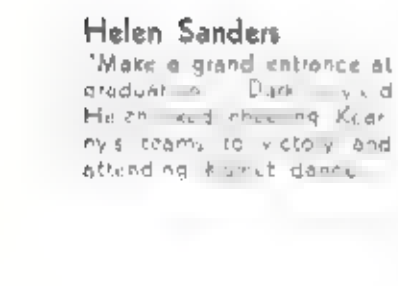 Helen Sanders
"Make a grand entrance at
graduation. Dark
Helen cheering Kear-
ny's teams to victory and
attending dance